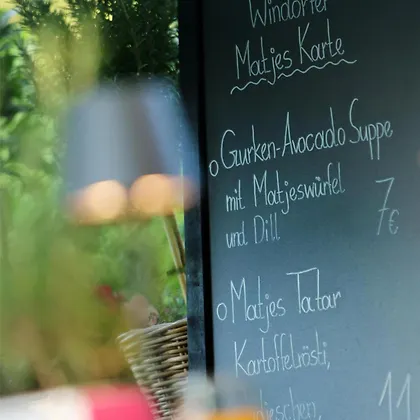 Windorfer
Matjes Karte
o Gurken-Avocado Suppe
mit Matjeswürfel
und Dill 7 €
o Matjes Tatar
Kartoffelrösti,
11